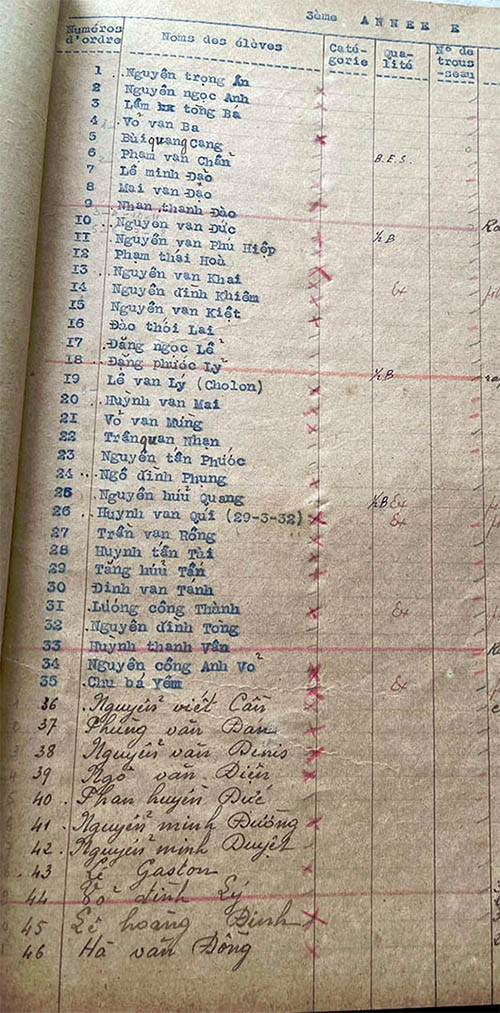 3ème ANNEE E
Numéros d'ordre Noms des élèves Caté-gorie Qua-lité N° de trous-seau
1 Nguyễn trọng Ấn
2 Nguyễn ngọc Anh
3 Lâm tòng Bá
4 Võ văn Ba
5 Bùi quang Cang
6 Phạm văn Chẩn B.E.S.
7 Lê minh Đạo
8 Mai văn Đào
9 Nhan thanh Đào
10 Nguyễn văn Đức
11 Nguyễn văn Phú Hiệp ½ B
12 Phạm thái Hoà
13 Nguyễn văn Khai
14 Nguyễn đình Khiêm Ex
15 Nguyễn văn Kiệt
16 Đào thới Lai
17 Đặng ngọc Lễ
18 Đặng phước Lý
19 Lê văn Lý (Cholon) ½ B
20 Huỳnh văn Mai
21 Võ văn Mừng
22 Trần quan Nhạn
23 Nguyễn tấn Phước
24 Ngô đình Phụng
25 Nguyễn hữu Quang ½ B Ex
26 Huỳnh văn Quí (29-3-32) Ex
27 Trần văn Rồng
28 Huỳnh tấn Tài
29 Tăng hữu Tấn
30 Đinh văn Tánh
31 Lương công Thành Ex
32 Nguyễn đình Tòng
33 Huỳnh thanh Vân
34 Nguyễn công Anh Võ
35 Chu bá Yêm Ex
36 Nguyễn viết Cần
37 Phùng văn Đán
38 Nguyễn văn Denis
39 Ngô văn Diện
40 Phan huyến Đức
41 Nguyễn minh Đường
42 Nguyễn minh Duyệt
43 Lê Gaston
44 Võ đình Lý
45 Lê hoàng Đinh
46 Hà văn Đồng